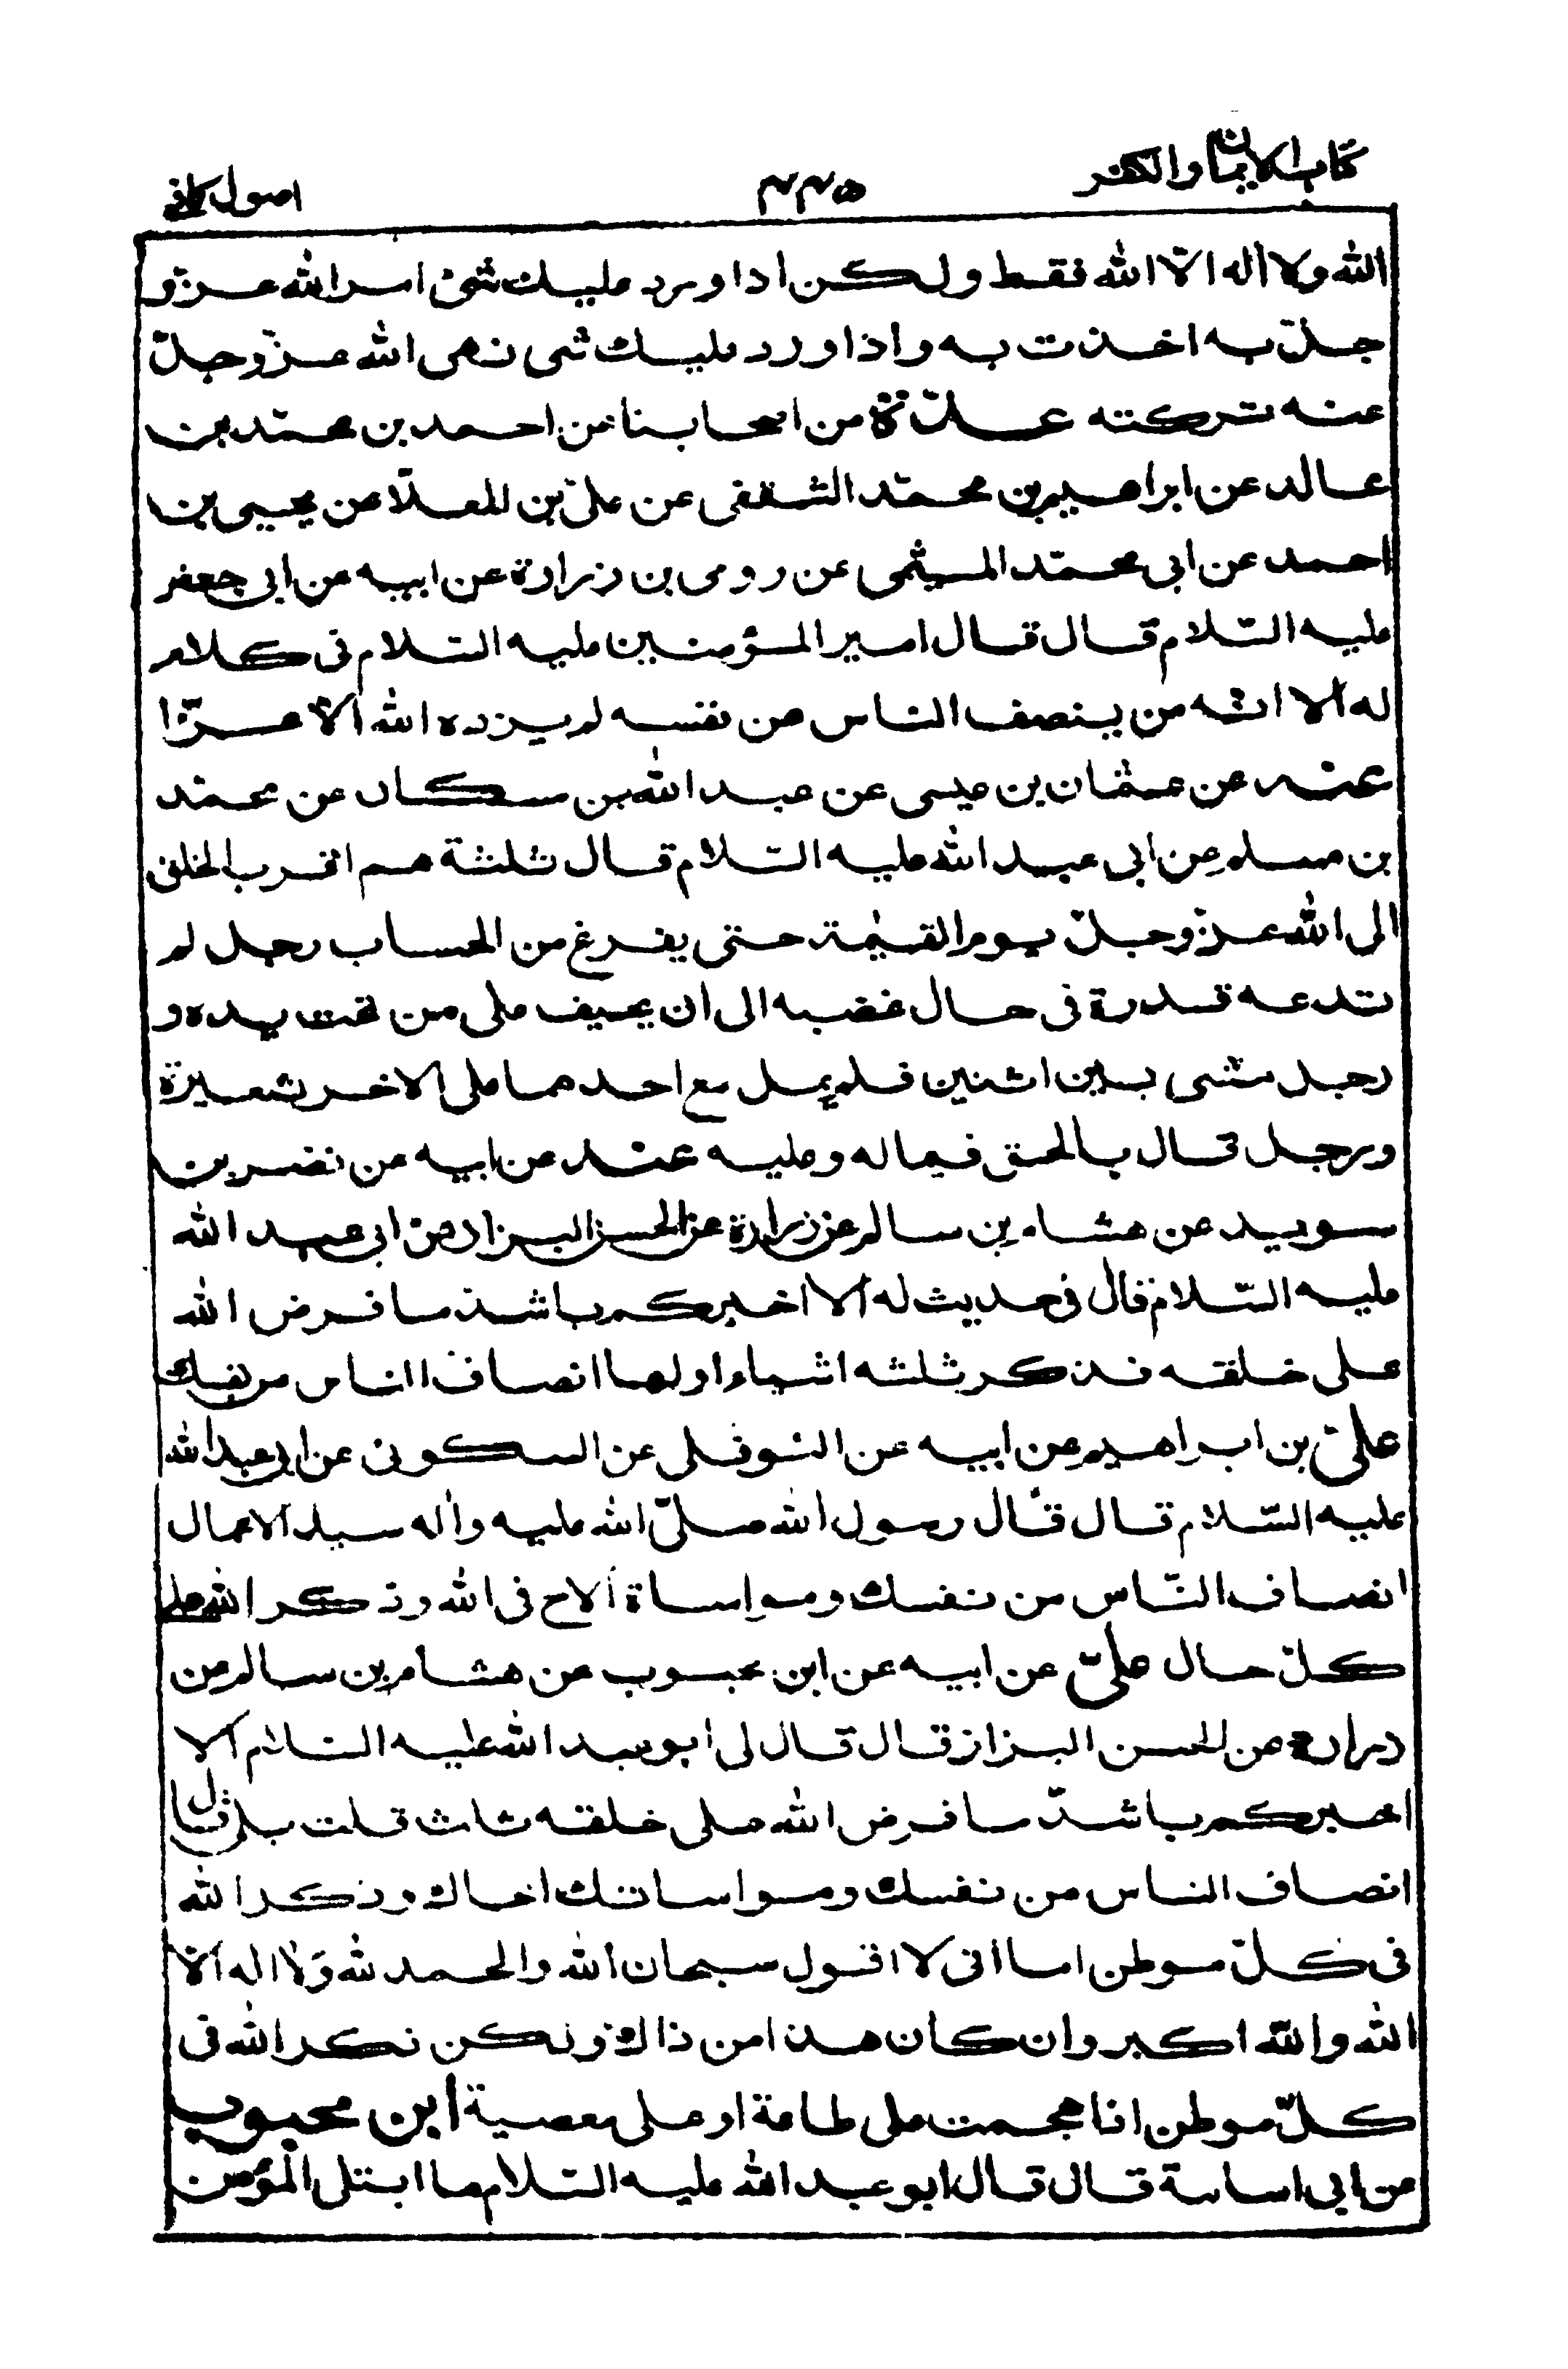 كتاب الايمان والكفر
۴۴۵
اصول كافى
الله ولا اله الا الله فقط ولكن اذا ورد عليك شئ امر الله عزّ و
جلّ به اخذت به واذا ورد عليك شى نهى الله عزّ وجلّ
عنه تركته عدّة من اصحابنا عن احمد بن محمّد بن
خالد عن ابراهيم بن محمّد الثقفى عن علىّ بن المعلّا عن يحيى بن
احمد عن ابى محمّد الميثمى عن رومى بن زرارة عن ابيه عن ابى جعفر
عليه السّلام قال قال امير المؤمنين عليه السّلام فى كلام
له ألا انّه من ينصف الناس من نفسه لم يزده الله الا عزّا
عنه عن عثمان بن عيسى عن عبد الله بن مسكان عن محمّد
بن مسلم عن ابى عبد الله عليه السّلام قال ثلثة هم اقرب الخلق
الى الله عزّ وجلّ يوم القيٰمة حتى يفرغ من الحساب رجل لم
تدعه قدرة فى حال غضبه الى ان يحيف على من تحت يده و
رجل مشى بين اثنين فلم يمل مع احدهما على الاخر بشعيرة
ورجل قال بالحق فيما له وعليه عنه عن ابيه عن نضر بن
سويد عن هشام بن سالم عن زرارة عن الحسن البزاز عن ابى عبد الله
عليه السّلام قال فى حديث له ألا اخبركم باشد ما فرض الله
على خلقه فذكر ثلثه اشياء اولها انصاف الناس من نفسك
علىّ بن ابراهيم عن ابيه عن النوفلى عن السكونى عن ابى عبد الله
عليه السّلام قال قال رسول الله صلّى الله عليه وأله سيد الاعمال
انصاف النّاس من نفسك ومواساة الاخ فى الله وذكر الله على
كلّ حال علىّ عن ابيه عن ابن محبوب عن هشام بن سالم عن
زرارة عن الحسن البزاز قال قال لى ابو عبد الله عليه السّلام ألا
اخبركم باشدّ ما فرض الله على خلقه ثلث قلت بلى قال
انصاف الناس من نفسك ومواساتك اخاك وذكر الله
فى كلّ موطن اما انى لا اقول سبحان الله والحمد لله ولا اله الا
الله والله اكبر وان كان هذا من ذاك ولكن ذكر الله فى
كلّ موطن اذا هجمت على طاعة او على معصية ابن محبوب
عن ابى اسامة قال قال ابو عبد الله عليه السّلام ما ابتلى المؤمن